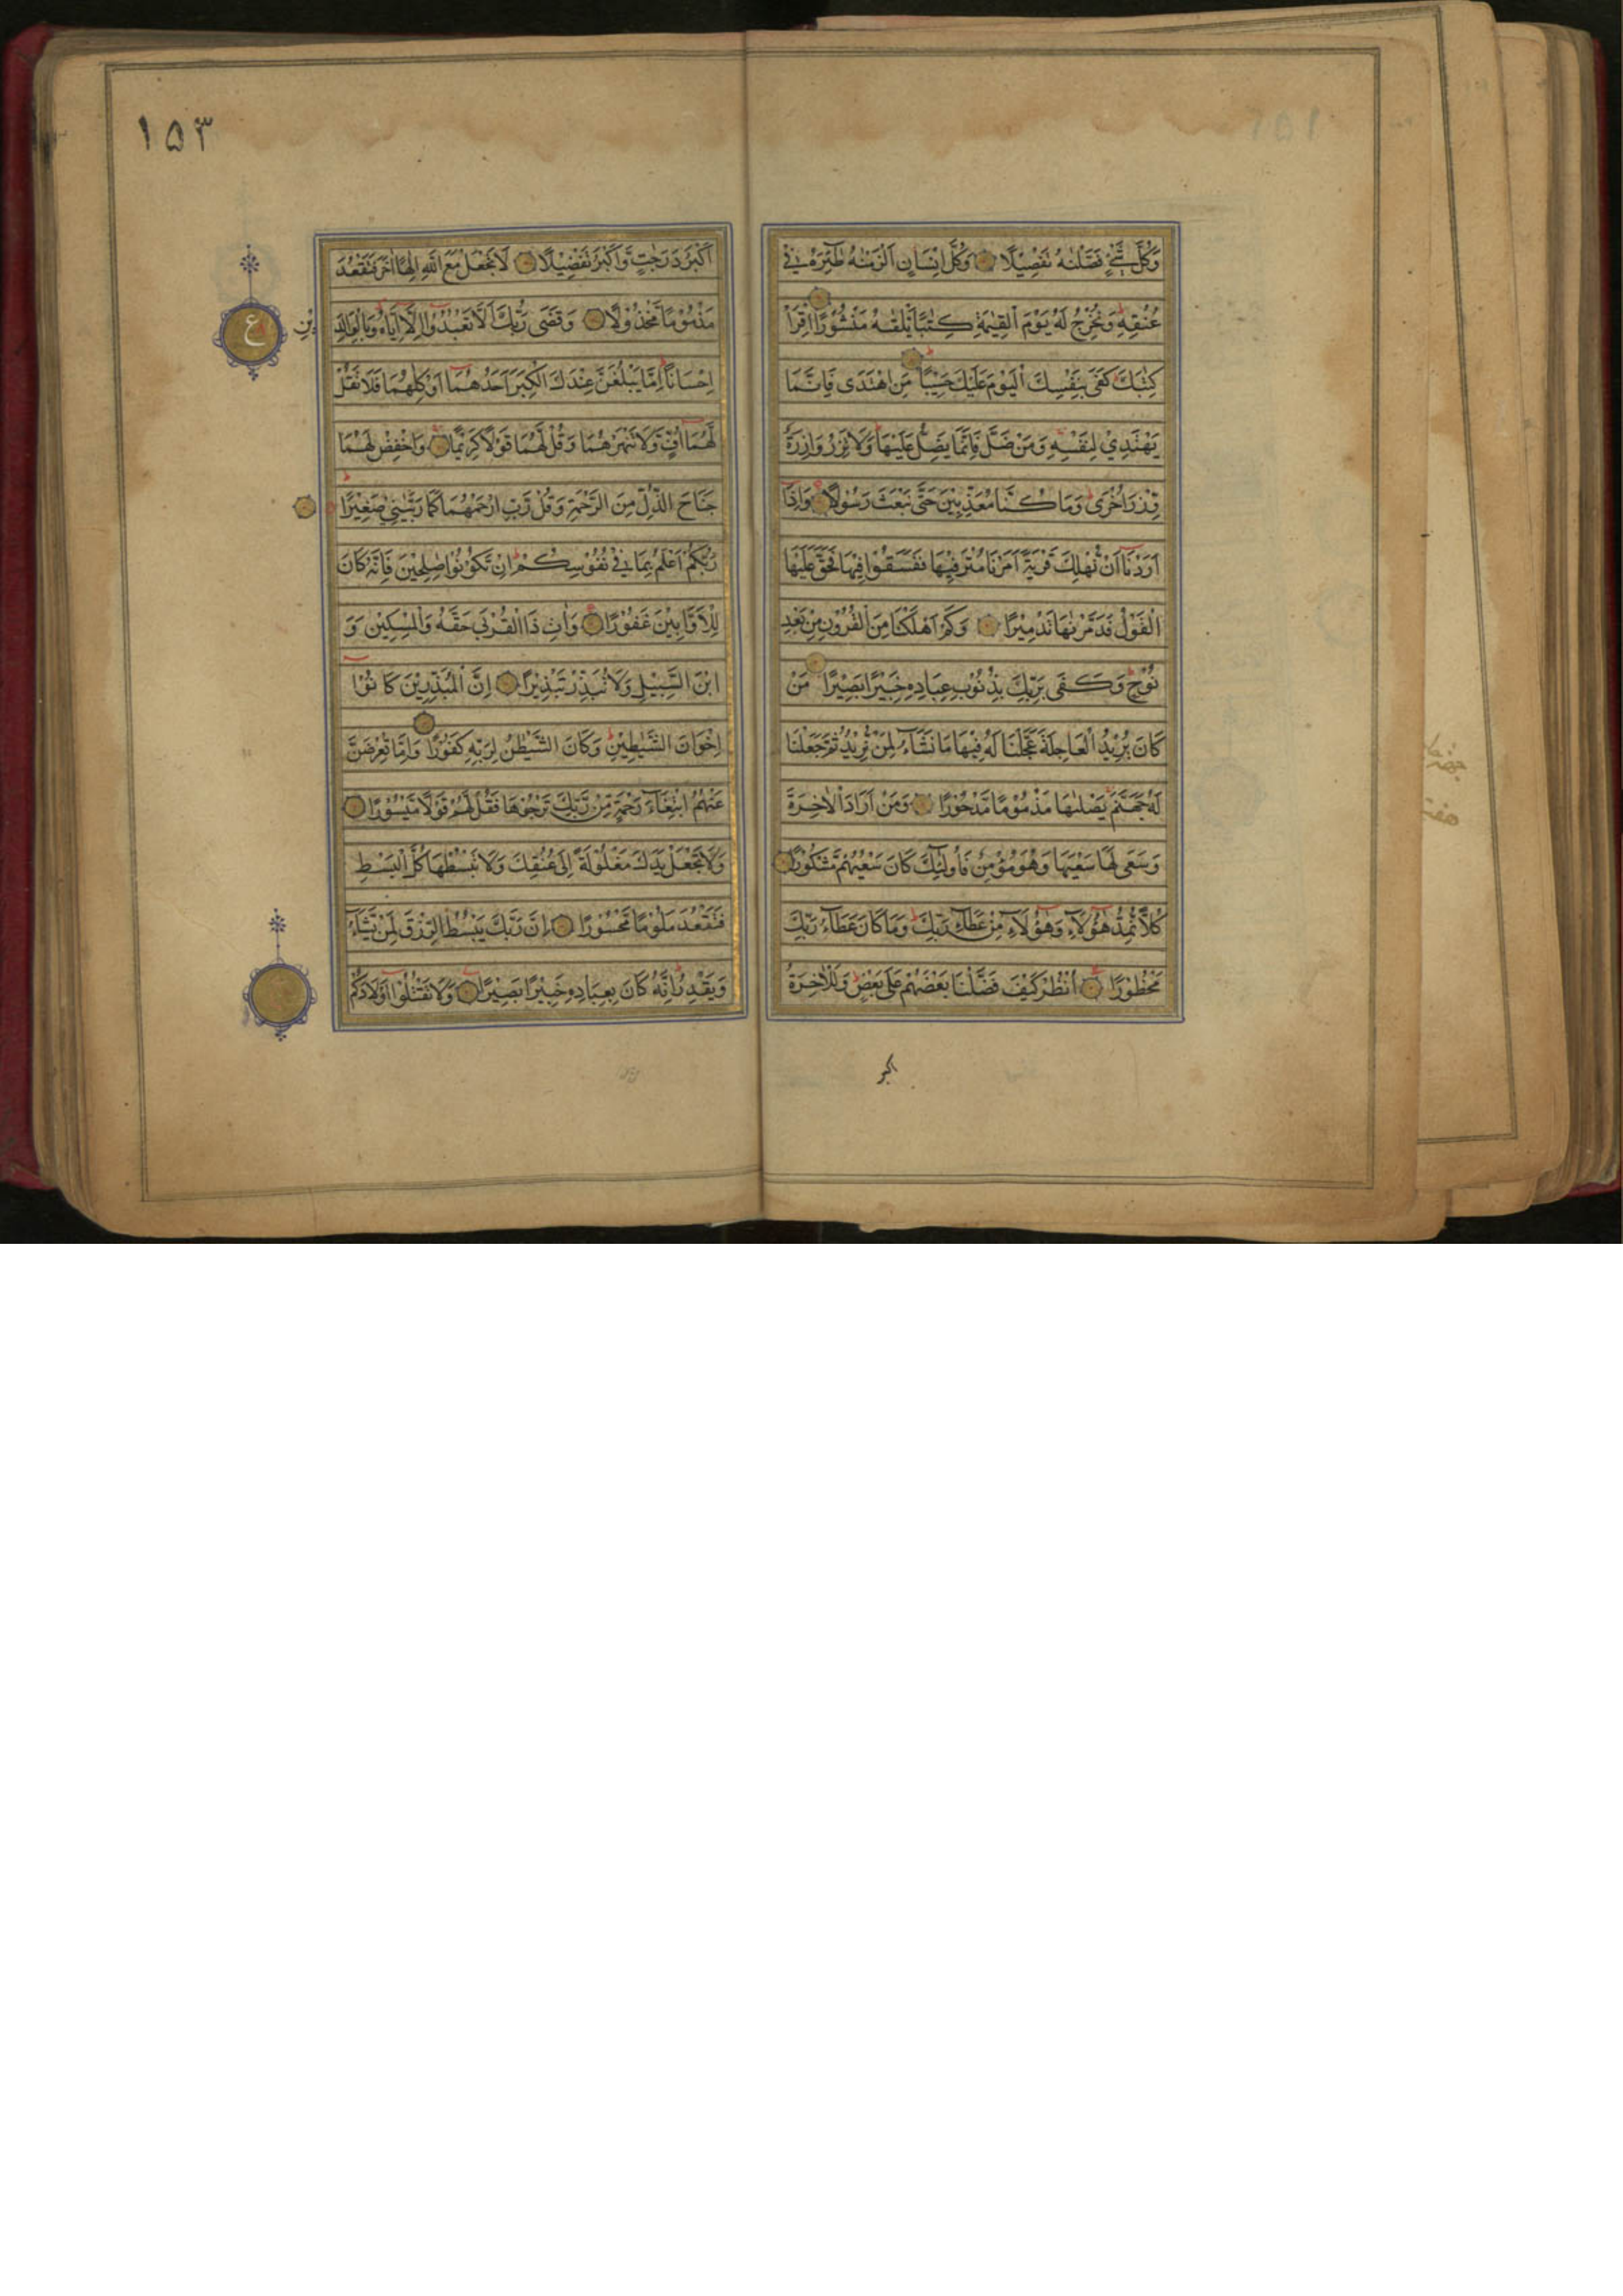 وَكُلَّ شَيْءٍ فَصَّلْنٰهُ تَفْصِيْلًا وَكُلَّ اِنْسَانٍ اَلْزَمْنٰهُ طٰٓئِرَهٗ فِيْ
عُنُقِهٖ وَنُخْرِجُ لَهٗ يَوْمَ الْقِيٰمَةِ كِتٰبًا يَّلْقٰىهُ مَنْشُوْرًا اِقْرَاْ
كِتٰبَكَ كَفٰى بِنَفْسِكَ الْيَوْمَ عَلَيْكَ حَسِيْبًا مَنِ اهْتَدٰى فَاِنَّمَا
يَهْتَدِيْ لِنَفْسِهٖ وَمَنْ ضَلَّ فَاِنَّمَا يَضِلُّ عَلَيْهَا وَلَا تَزِرُ وَازِرَةٌ
وِّزْرَ اُخْرٰى وَمَا كُنَّا مُعَذِّبِيْنَ حَتّٰى نَبْعَثَ رَسُوْلًا وَاِذَا
اَرَدْنَا اَنْ نُّهْلِكَ قَرْيَةً اَمَرْنَا مُتْرَفِيْهَا فَفَسَقُوْا فِيْهَا فَحَقَّ عَلَيْهَا
الْقَوْلُ فَدَمَّرْنٰهَا تَدْمِيْرًا وَكَمْ اَهْلَكْنَا مِنَ الْقُرُوْنِ مِنْ بَعْدِ
نُوْحٍ وَكَفٰى بِرَبِّكَ بِذُنُوْبِ عِبَادِهٖ خَبِيْرًا بَصِيْرًا مَنْ
كَانَ يُرِيْدُ الْعَاجِلَةَ عَجَّلْنَا لَهٗ فِيْهَا مَا نَشَآءُ لِمَنْ نُّرِيْدُ ثُمَّ جَعَلْنَا
لَهٗ جَهَنَّمَ يَصْلٰىهَا مَذْمُوْمًا مَّدْحُوْرًا وَمَنْ اَرَادَ الْاٰخِرَةَ
وَسَعٰى لَهَا سَعْيَهَا وَهُوَ مُؤْمِنٌ فَاُولٰٓئِكَ كَانَ سَعْيُهُمْ مَّشْكُوْرًا
كُلًّا نُّمِدُّ هٰٓؤُلَآءِ وَهٰٓؤُلَآءِ مِنْ عَطَآءِ رَبِّكَ وَمَا كَانَ عَطَآءُ رَبِّكَ
مَحْظُوْرًا اُنْظُرْ كَيْفَ فَضَّلْنَا بَعْضَهُمْ عَلٰى بَعْضٍ وَلَلْاٰخِرَةُ
اكبر
١٥٣
اَكْبَرُ دَرَجٰتٍ وَّاَكْبَرُ تَفْضِيْلًا لَا تَجْعَلْ مَعَ اللّٰهِ اِلٰهًا اٰخَرَ فَتَقْعُدَ
مَذْمُوْمًا مَّخْذُوْلًا وَقَضٰى رَبُّكَ اَلَّا تَعْبُدُوْا اِلَّا اِيَّاهُ وَبِالْوَالِدَيْنِ
ع
اِحْسَانًا اِمَّا يَبْلُغَنَّ عِنْدَكَ الْكِبَرَ اَحَدُهُمَا اَوْ كِلٰهُمَا فَلَا تَقُلْ
لَّهُمَا اُفٍّ وَّلَا تَنْهَرْهُمَا وَقُلْ لَّهُمَا قَوْلًا كَرِيْمًا وَاخْفِضْ لَهُمَا
جَنَاحَ الذُّلِّ مِنَ الرَّحْمَةِ وَقُلْ رَّبِّ ارْحَمْهُمَا كَمَا رَبَّيٰنِيْ صَغِيْرًا
رَبُّكُمْ اَعْلَمُ بِمَا فِيْ نُفُوْسِكُمْ اِنْ تَكُوْنُوْا صٰلِحِيْنَ فَاِنَّهٗ كَانَ
لِلْاَوَّابِيْنَ غَفُوْرًا وَاٰتِ ذَا الْقُرْبٰى حَقَّهٗ وَالْمِسْكِيْنَ وَ
ابْنَ السَّبِيْلِ وَلَا تُبَذِّرْ تَبْذِيْرًا اِنَّ الْمُبَذِّرِيْنَ كَانُوْا
اِخْوَانَ الشَّيٰطِيْنِ وَكَانَ الشَّيْطٰنُ لِرَبِّهٖ كَفُوْرًا وَاِمَّا تُعْرِضَنَّ
عَنْهُمُ ابْتِغَآءَ رَحْمَةٍ مِّنْ رَّبِّكَ تَرْجُوْهَا فَقُلْ لَّهُمْ قَوْلًا مَّيْسُوْرًا
وَلَا تَجْعَلْ يَدَكَ مَغْلُوْلَةً اِلٰى عُنُقِكَ وَلَا تَبْسُطْهَا كُلَّ الْبَسْطِ
فَتَقْعُدَ مَلُوْمًا مَّحْسُوْرًا اِنَّ رَبَّكَ يَبْسُطُ الرِّزْقَ لِمَنْ يَّشَآءُ
وَيَقْدِرُ اِنَّهٗ كَانَ بِعِبَادِهٖ خَبِيْرًا بَصِيْرًا وَلَا تَقْتُلُوْا اَوْلَادَكُمْ